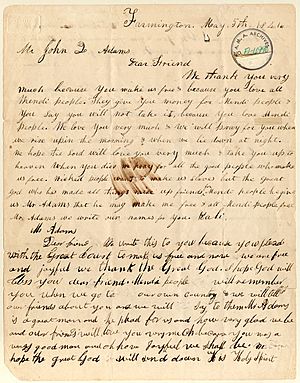 Farmington, May, 5th, 18
Mr John Q Adams
Dear Friend
We thank you very
much because You make us free & because you love all
Mendi people. They give You money for Mendi people &
You say you will not take it, because You love Mendi
People. We love You very much & we will pray for You when
we rise up in the morning & when we lie down at night.
We hope the Lord will love you very much & take You up to
heaven when You die. We pray for all the good people who make
us free. Wicked people want to make us slaves but the great
God who has made all things up friends Mendi people
Mr Adams that he may make me free & all Mendi people free
Mr Adams we write our names for You. Kali.
Mr Adams
Dear friend We write this to you because you plead
with the Great Court to make us free and now we are free
and joyful we thank the Great God. I hope God will
bless you dear friend. Mendi people will remember
you when we go to our own country & we will tell
our friends about you and we will say to them Mr Adams
is a great man and he plead for us and how very glad we be
and our friends will love you very much because you was a
very good man and oh how joyful we shall be.
hope the great God will send down his Holy Spirit